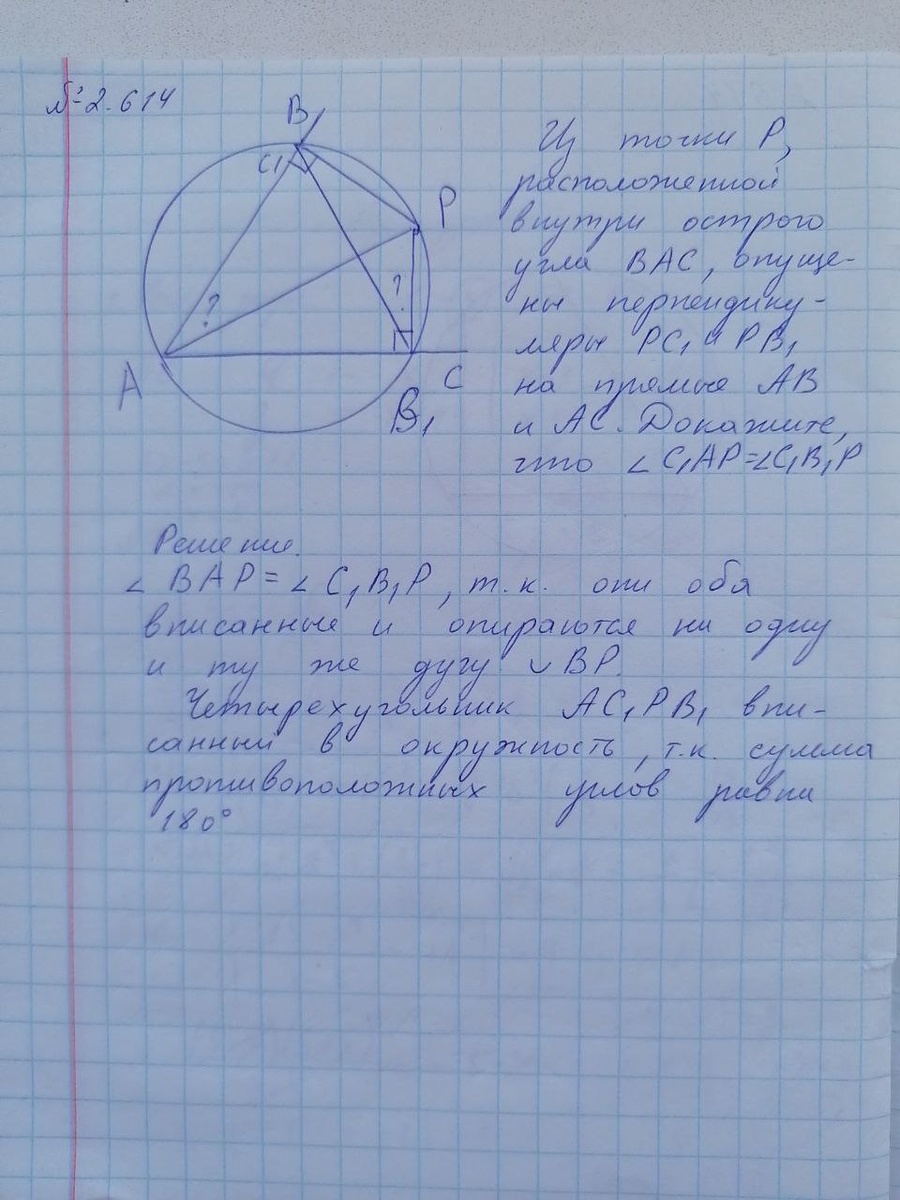 №2.614
B
C1
P
?
?
A
C
B1
Из точки P,
расположенной
внутри острого
угла BAC, опуще-
ны перпендику-
ляры PC1 и PB1
на прямые AB
и AC. Докажите,
что ∠C1AP=∠C1B1P
Решение.
∠BAP=∠C1B1P, т.к. они оба
вписанные и опираются на одну
и ту же дугу ◡BP.
Четырехугольник AC1PB1 впи-
санный в окружность, т.к. сумма
противоположных углов равна
180°